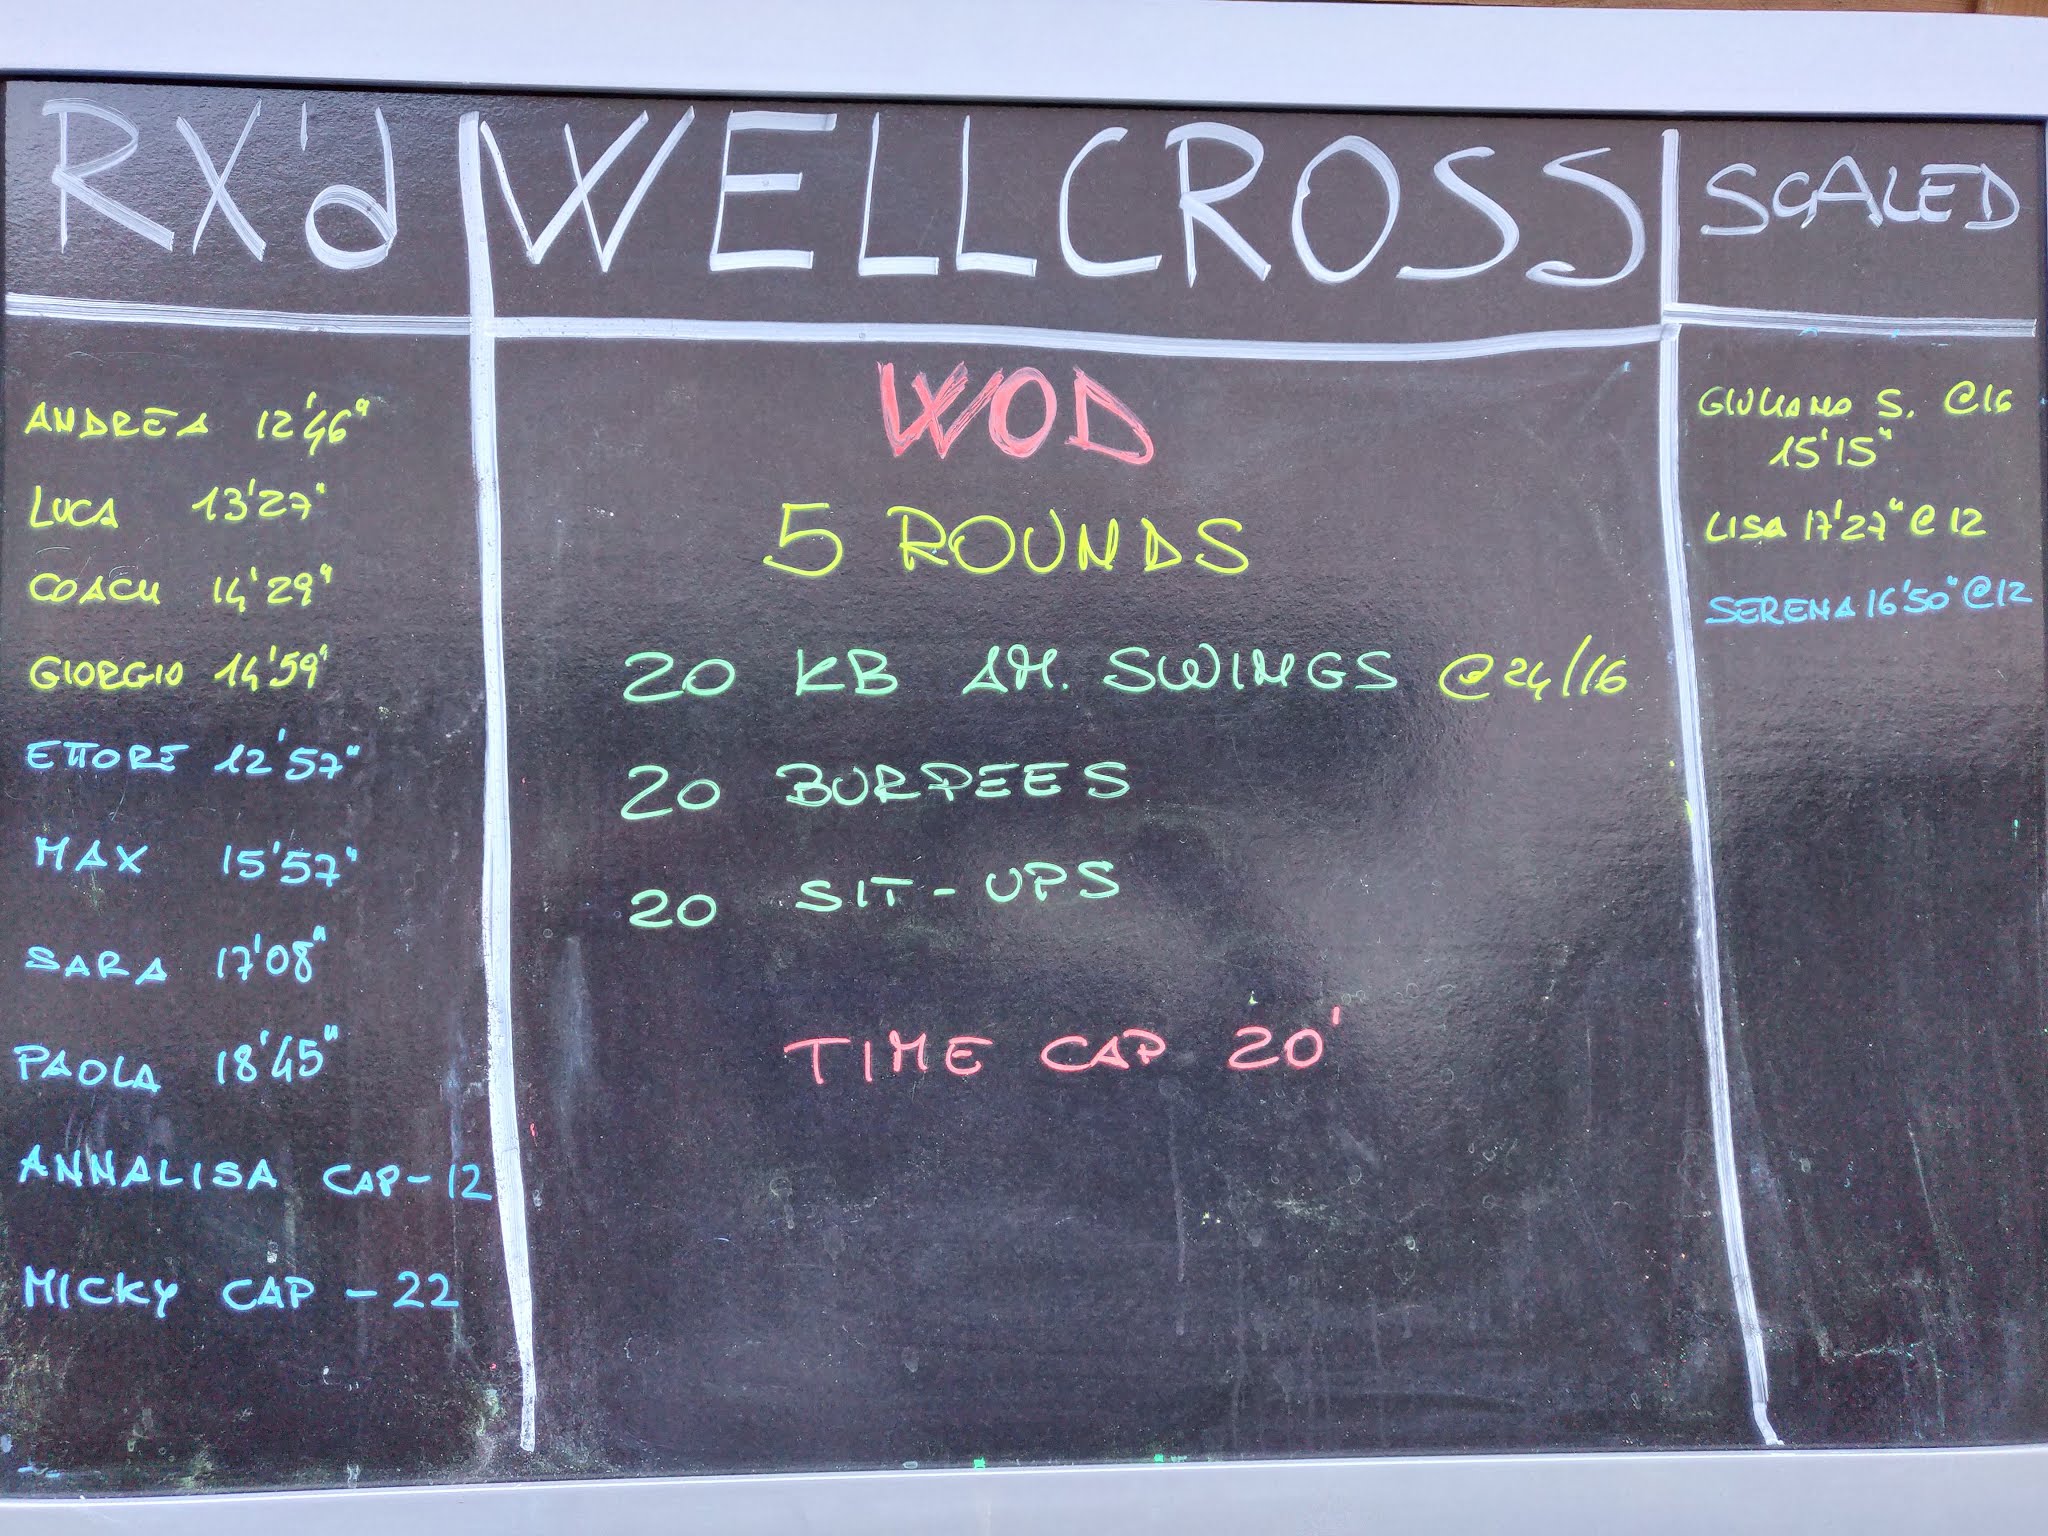 RX'd
WELLCROSS
SCALED
ANDREA 12'46"
LUCA 13'27"
COACH 14'29"
GIORGIO 14'59"
ETTORE 12'57"
MAX 15'57"
SARA 17'08"
PAOLA 18'45"
ANNALISA CAP-12
MICKY CAP -22
WOD
5 ROUNDS
20 KB AM. SWINGS @24/16
20 BURPEES
20 SIT-UPS
TIME CAP 20'
GIULIANO S. @16
15'15"
LISA 17'27" @12
SERENA 16'50" @12